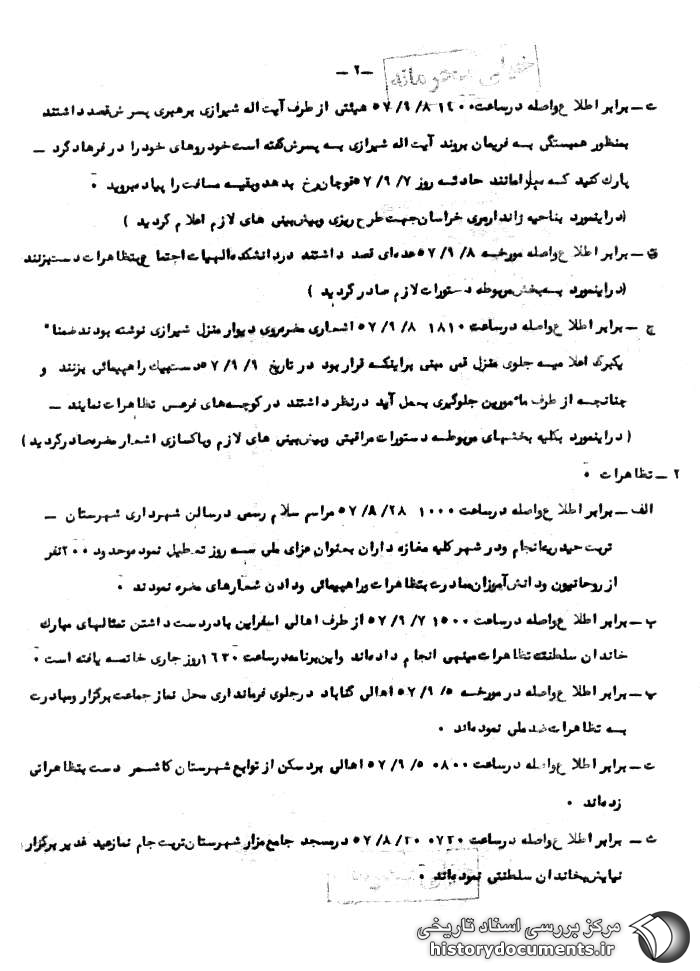 ـ۲ـ
خیلی محرمانه
ت ـ برابر اطلاع واصله درساعت ۱۲۰۰ ۵۷/۹/۸ هیئتی از طرف آیت اله شیرازی برهبری پسرش قصد داشتند
بمنظور همبستگی به فریمان بروند آیت اله شیرازی به پسرش گفته است خودروهای خود را در فرهادگرد ـ
پارك کنید که مبادا مانند حادثه روز ۵۷/۹/۷ قوچان رخ بدهد وبقیه مسافت را پیاده بروید ۰
(دراینمورد بناحیه ژاندارمری خراسان جهت طرح ریزی وپیش بینی های لازم اعلام گردید )
ث ـ برابر اطلاع واصله مورخه ۵۷/۹/۸ عده‌ای قصد داشتند دردانشکده الهیات اجتماع وبتظاهرات دست بزنند
(دراینمورد به بخش مربوطه دستورات لازم صادر گردید )
ج ـ برابر اطلاع واصله درساعت ۱۸۱۰ ۵۷/۹/۸ اشعاری مضره روی دیوار منزل شیرازی نوشته بودند ضمنا"
یکبرگ اعلامیه جلوی منزل قمی مبنی براینکه قرار بود در تاریخ ۵۷/۹/۹ دست بیك راهپیمائی بزنند و
چنانچه از طرف مأمورین جلوگیری بعمل آید درنظر داشتند در کوچه‌های فرعی تظاهرات نمایند ـ
( دراینمورد بکلیه بخشهای مربوطه دستورات مراقبتی وپیش بینی های لازم وپاکسازی اشعار مضره صادرگردید )
۲ ـ تظاهرات ۰
الف ـ برابر اطلاع واصله درساعت ۱۰۰۰ ۵۷/۸/۲۸ مراسم سلام رسمی درسالن شهرداری شهرستان ـ
تربت حیدریه انجام ودر شهر کلیه مغازه داران بعنوان عزای ملی سه روز تعطیل نموده وحدود ۲۰۰ نفر
از روحانیون ودانش آموزان مبادرت بتظاهرات وراهپیمائی ودادن شعارهای مضره نمودند ۰
ب ـ برابر اطلاع واصله درساعت ۱۵۰۰ ۵۷/۹/۷ از طرف اهالی اسفراین بادردست داشتن تمثالهای مبارك
خاندان سلطنتی تظاهرات میهنی انجام داده‌اند واین برنامه درساعت ۱۶۳۰ روز جاری خاتمه یافته است ۰
پ ـ برابر اطلاع واصله در مورخه ۵۷/۹/۵ اهالی گناباد درجلوی فرمانداری محل نماز جماعت برگزار ومبادرت
به تظاهرات ضد ملی نموده‌اند ۰
ت ـ برابر اطلاع واصله درساعت ۰۸۰۰ ۵۷/۹/۵ اهالی بردسکن از توابع شهرستان کاشمر دست بتظاهراتی
زده‌اند ۰
ث ـ برابر اطلاع واصله درساعت ۰۷۳۰ ۵۷/۸/۳۰ درمسجد جامع مزار شهرستان تربت جام نماز عید غدیر برگزار
نیایش بخاندان سلطنتی نموده‌اند ۰
مرکز بررسی اسناد تاریخی
historydocuments.ir